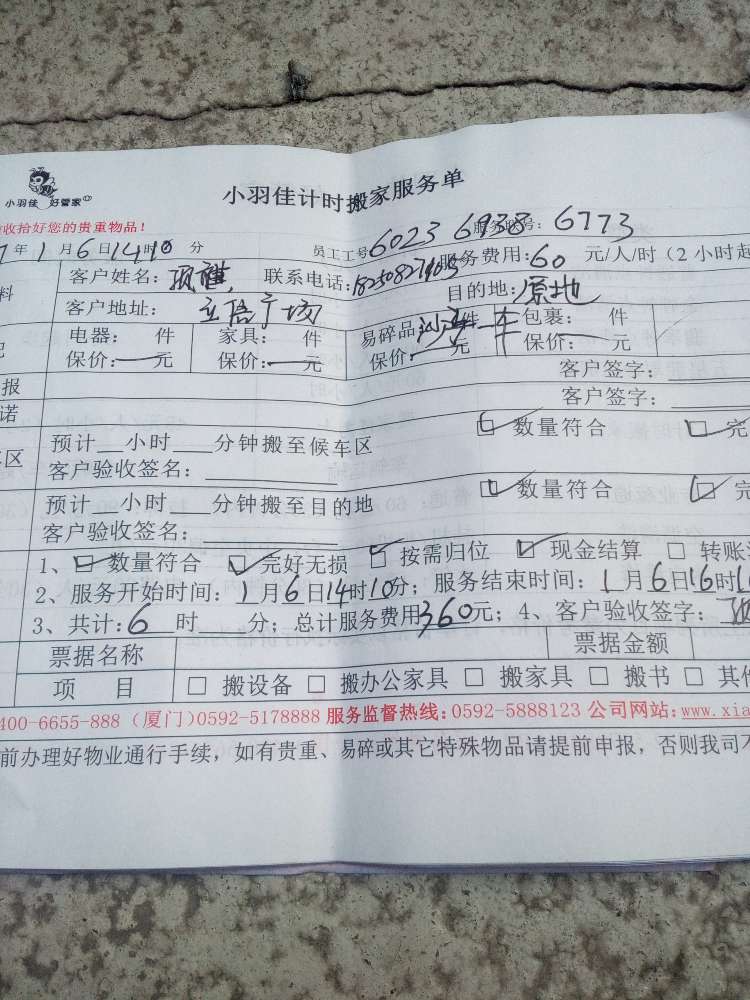 小羽佳 好管家
小羽佳计时搬家服务单
收拾好您的贵重物品！
7年1月6日14时10分 员工工号6023 6938 6773
服务费用:60 元/人/时（2小时起
客户姓名： 联系电话:
客户地址： 立信广场 目的地:原地
电器： 件 家具： 件 易碎品 件 包裹： 件
保价： 元 保价： 元 保价： 元 保价： 元
报 客户签字：
诺 客户签字：
预计__小时__分钟搬至候车区 ☑ 数量符合 ☑ 完
车区 客户验收签名：
预计__小时__分钟搬至目的地 ☑ 数量符合 ☑ 完
客户验收签名：
1、☑ 数量符合 ☑ 完好无损 ☑ 按需归位 ☑ 现金结算 □ 转账
2、服务开始时间：1月6日14时10分；服务结束时间：1月6日16时1
3、共计：6时 分；总计服务费用360元；4、客户验收签字：
票据名称 票据金额
项 目 □ 搬设备 □ 搬办公家具 □ 搬家具 □ 搬书 □ 其
400-6655-888（厦门）0592-5178888 服务监督热线：0592-5888123 公司网站：www.xia
前办理好物业通行手续，如有贵重、易碎或其它特殊物品请提前申报，否则我司不